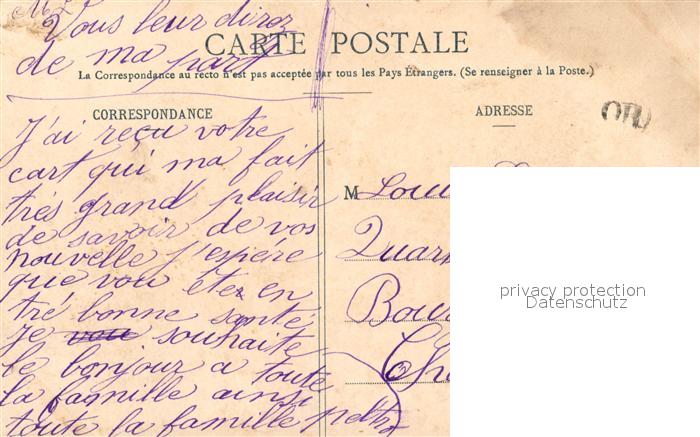 Vous leur direz
de ma part
CARTE POSTALE
La Correspondance au recto n'est pas acceptée par tous les Pays Étrangers. (Se renseigner à la Poste.)
CORRESPONDANCE
J'ai reçu votre
cart qui ma fait
très grand plaisir
de savoir de vos
nouvelle j'espére
que vou étez en
tré bonne santé
je vou souhaite
le bonjour a toute
la famille ainsi
toute la famille
ADRESSE
ORD
M Loui
Quar
Bou
Ch
privacy protection
Datenschutz